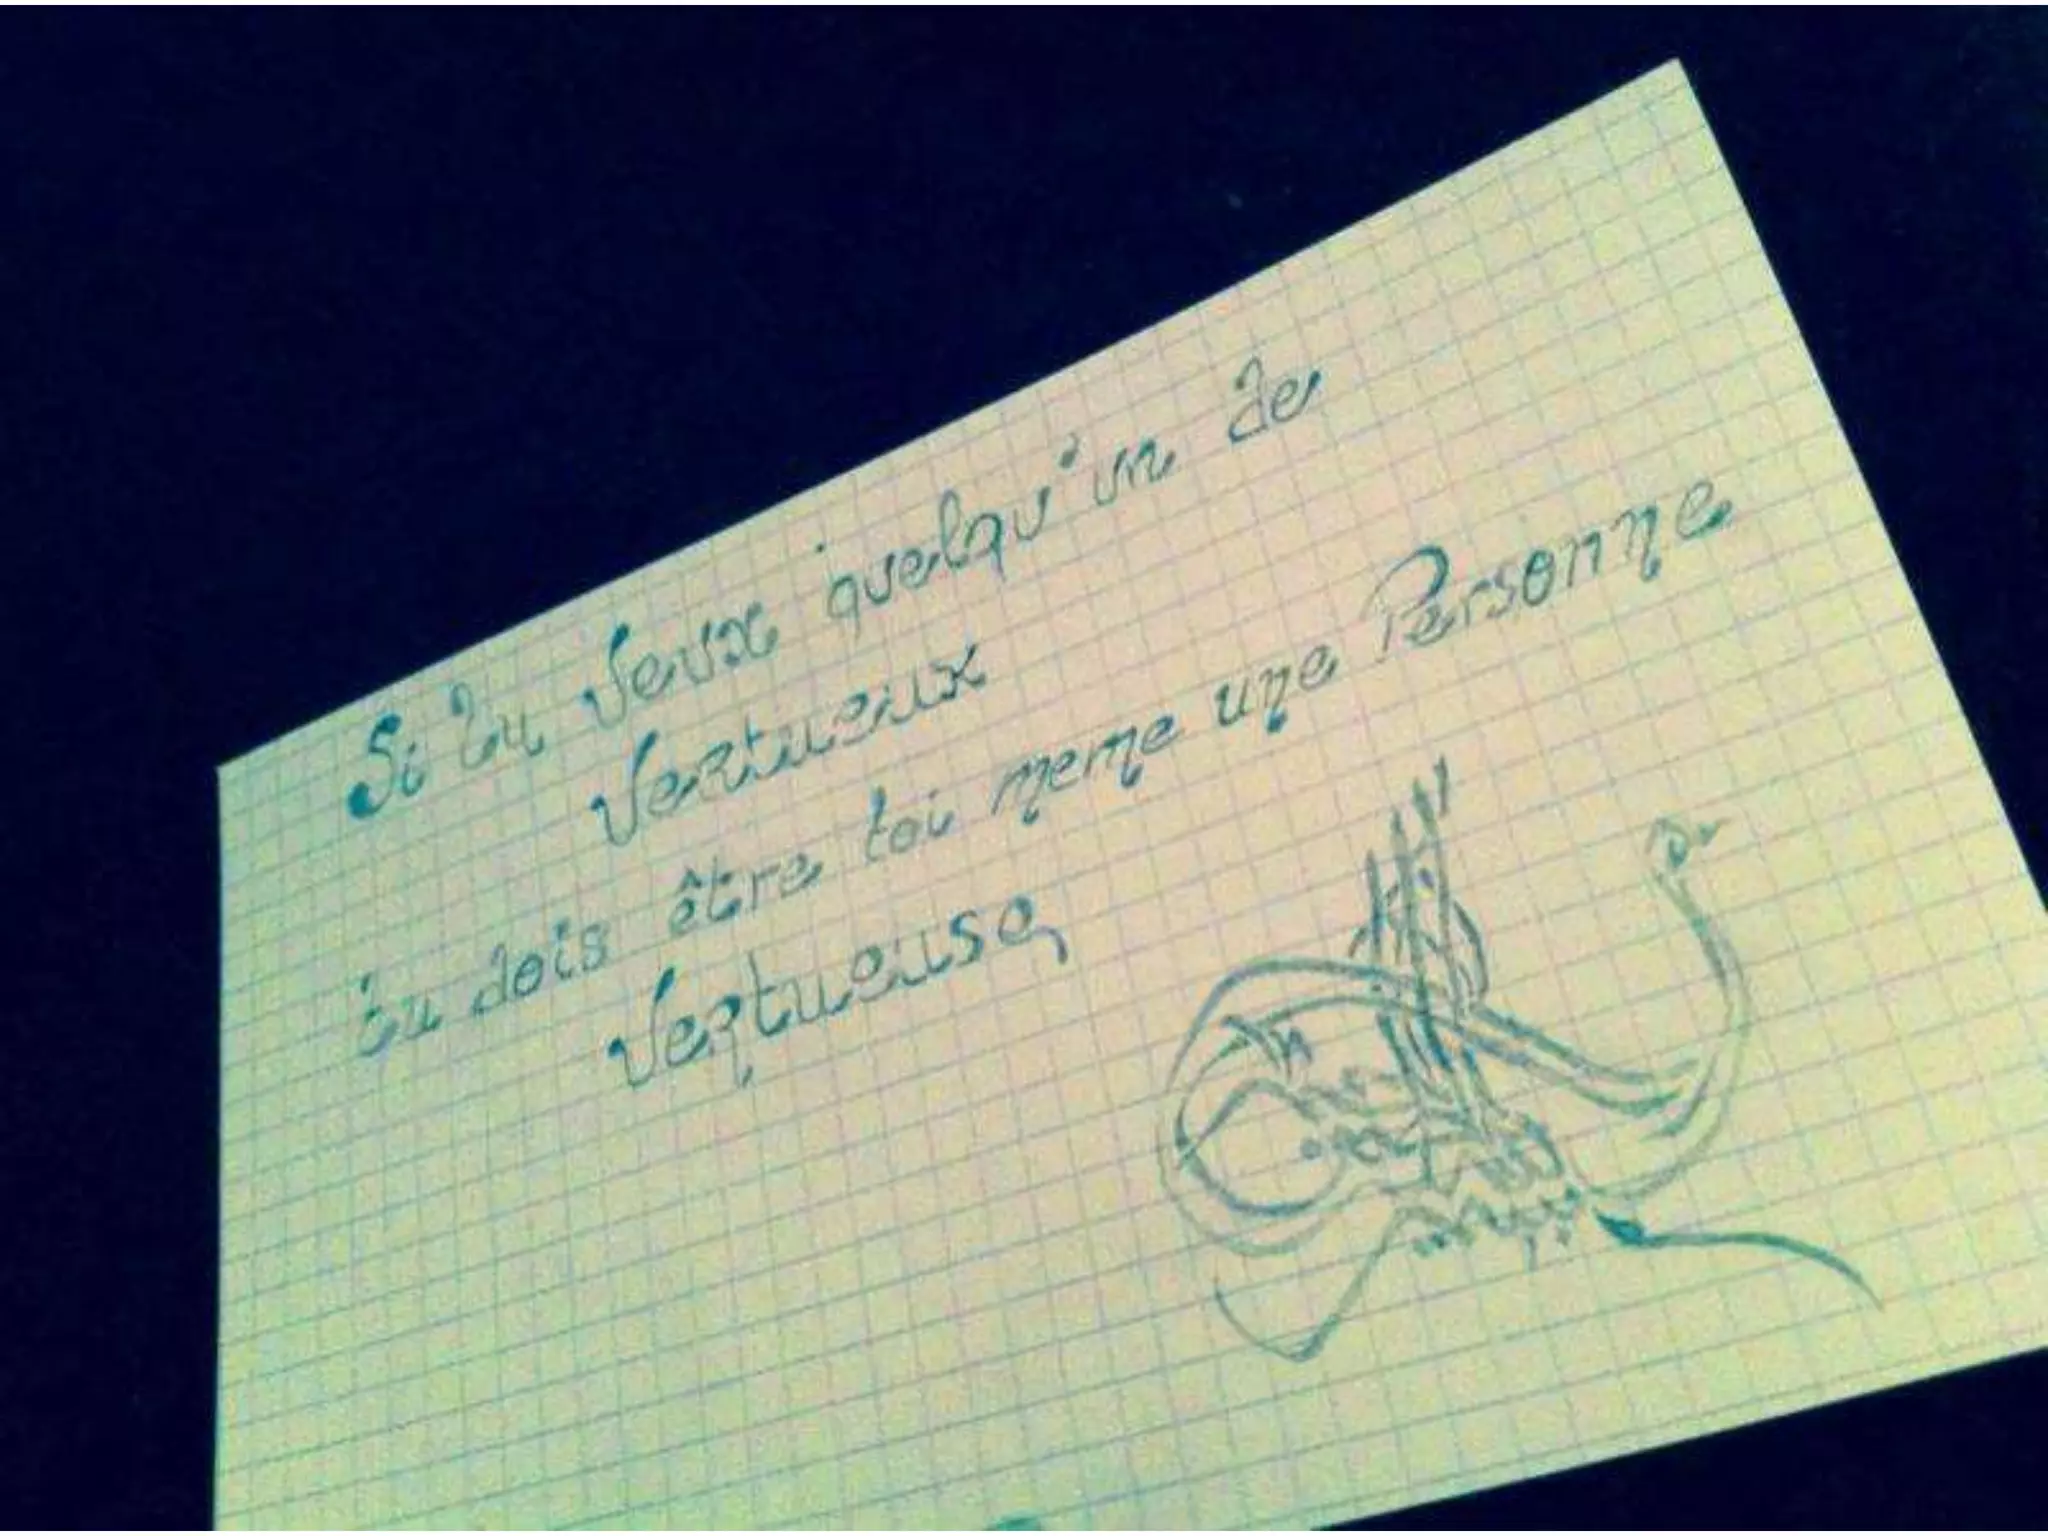 Si tu veux quelqu'un de
vertueux
tu dois être toi meme une Personne
vertueuse